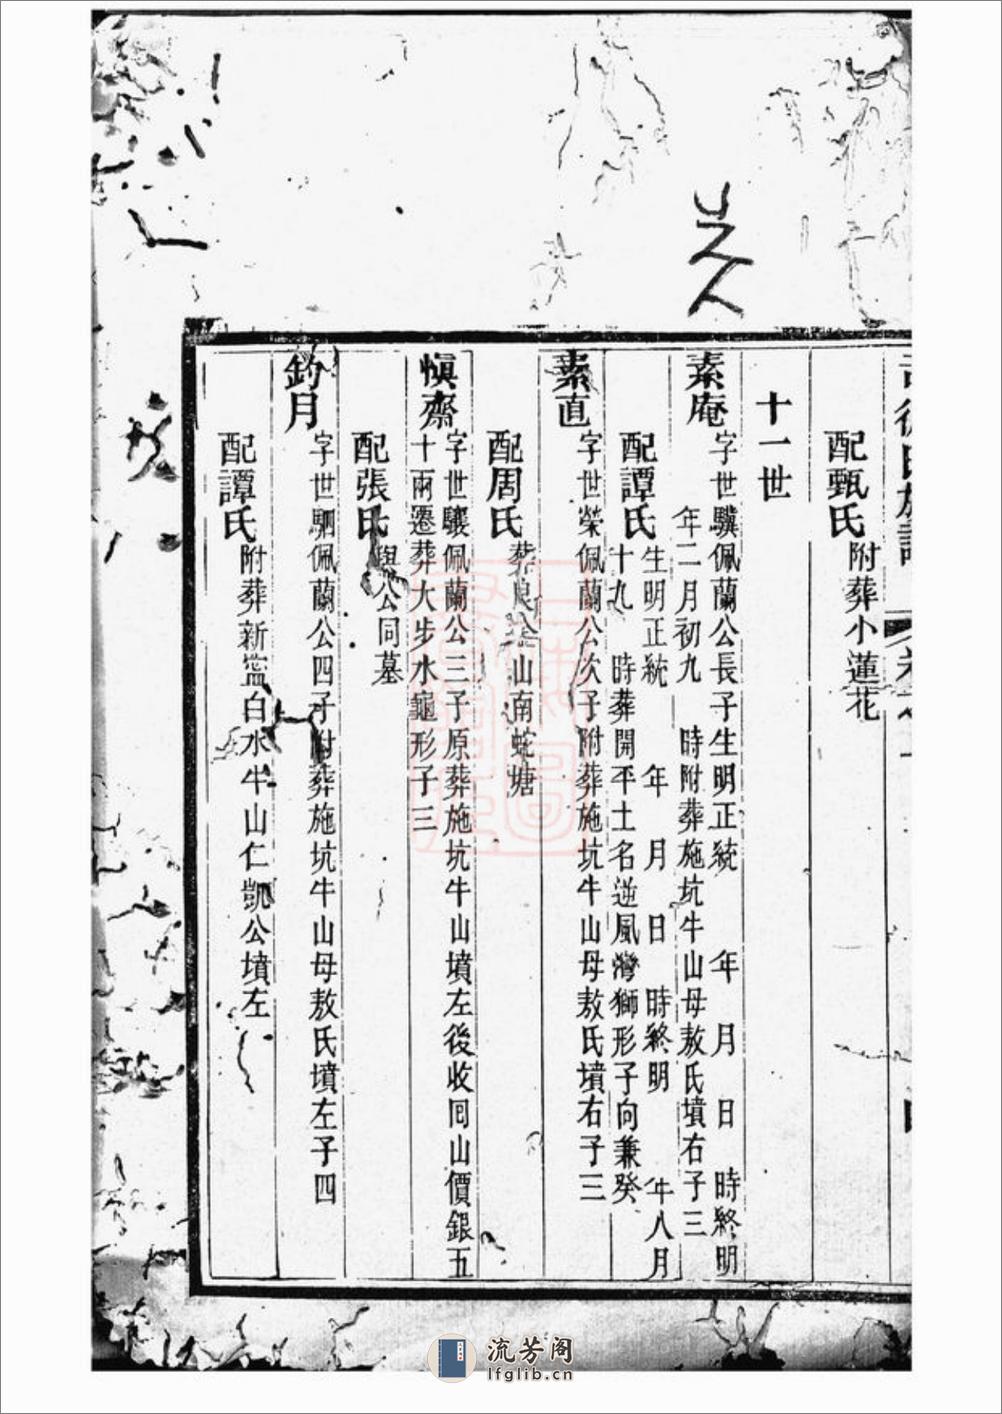 配甄氏附葬小蓮花
十一世
素庵字世驥佩蘭公長子生明正統 年 月 日 時終明
年二月初九 時附葬施坑牛山母敖氏墳右子三
配譚氏生明正統 年 月 日 時終明 年八月
十九 時葬開平土名逆風灣獅形子向兼癸
素直字世榮佩蘭公次子附葬施坑牛山母敖氏墳右子三
配周氏葬 山南蛇塘
慎齋字世驤佩蘭公三子原葬施坑牛山墳左後收囘山價銀五
十兩遷葬大步水龜形子三
配張氏與公同墓
釣月字世駟佩蘭公四子附葬施坑牛山母敖氏墳左子四
配譚氏附葬新塩白水牛山仁凱公墳左
流芳阁
lfglib.cn